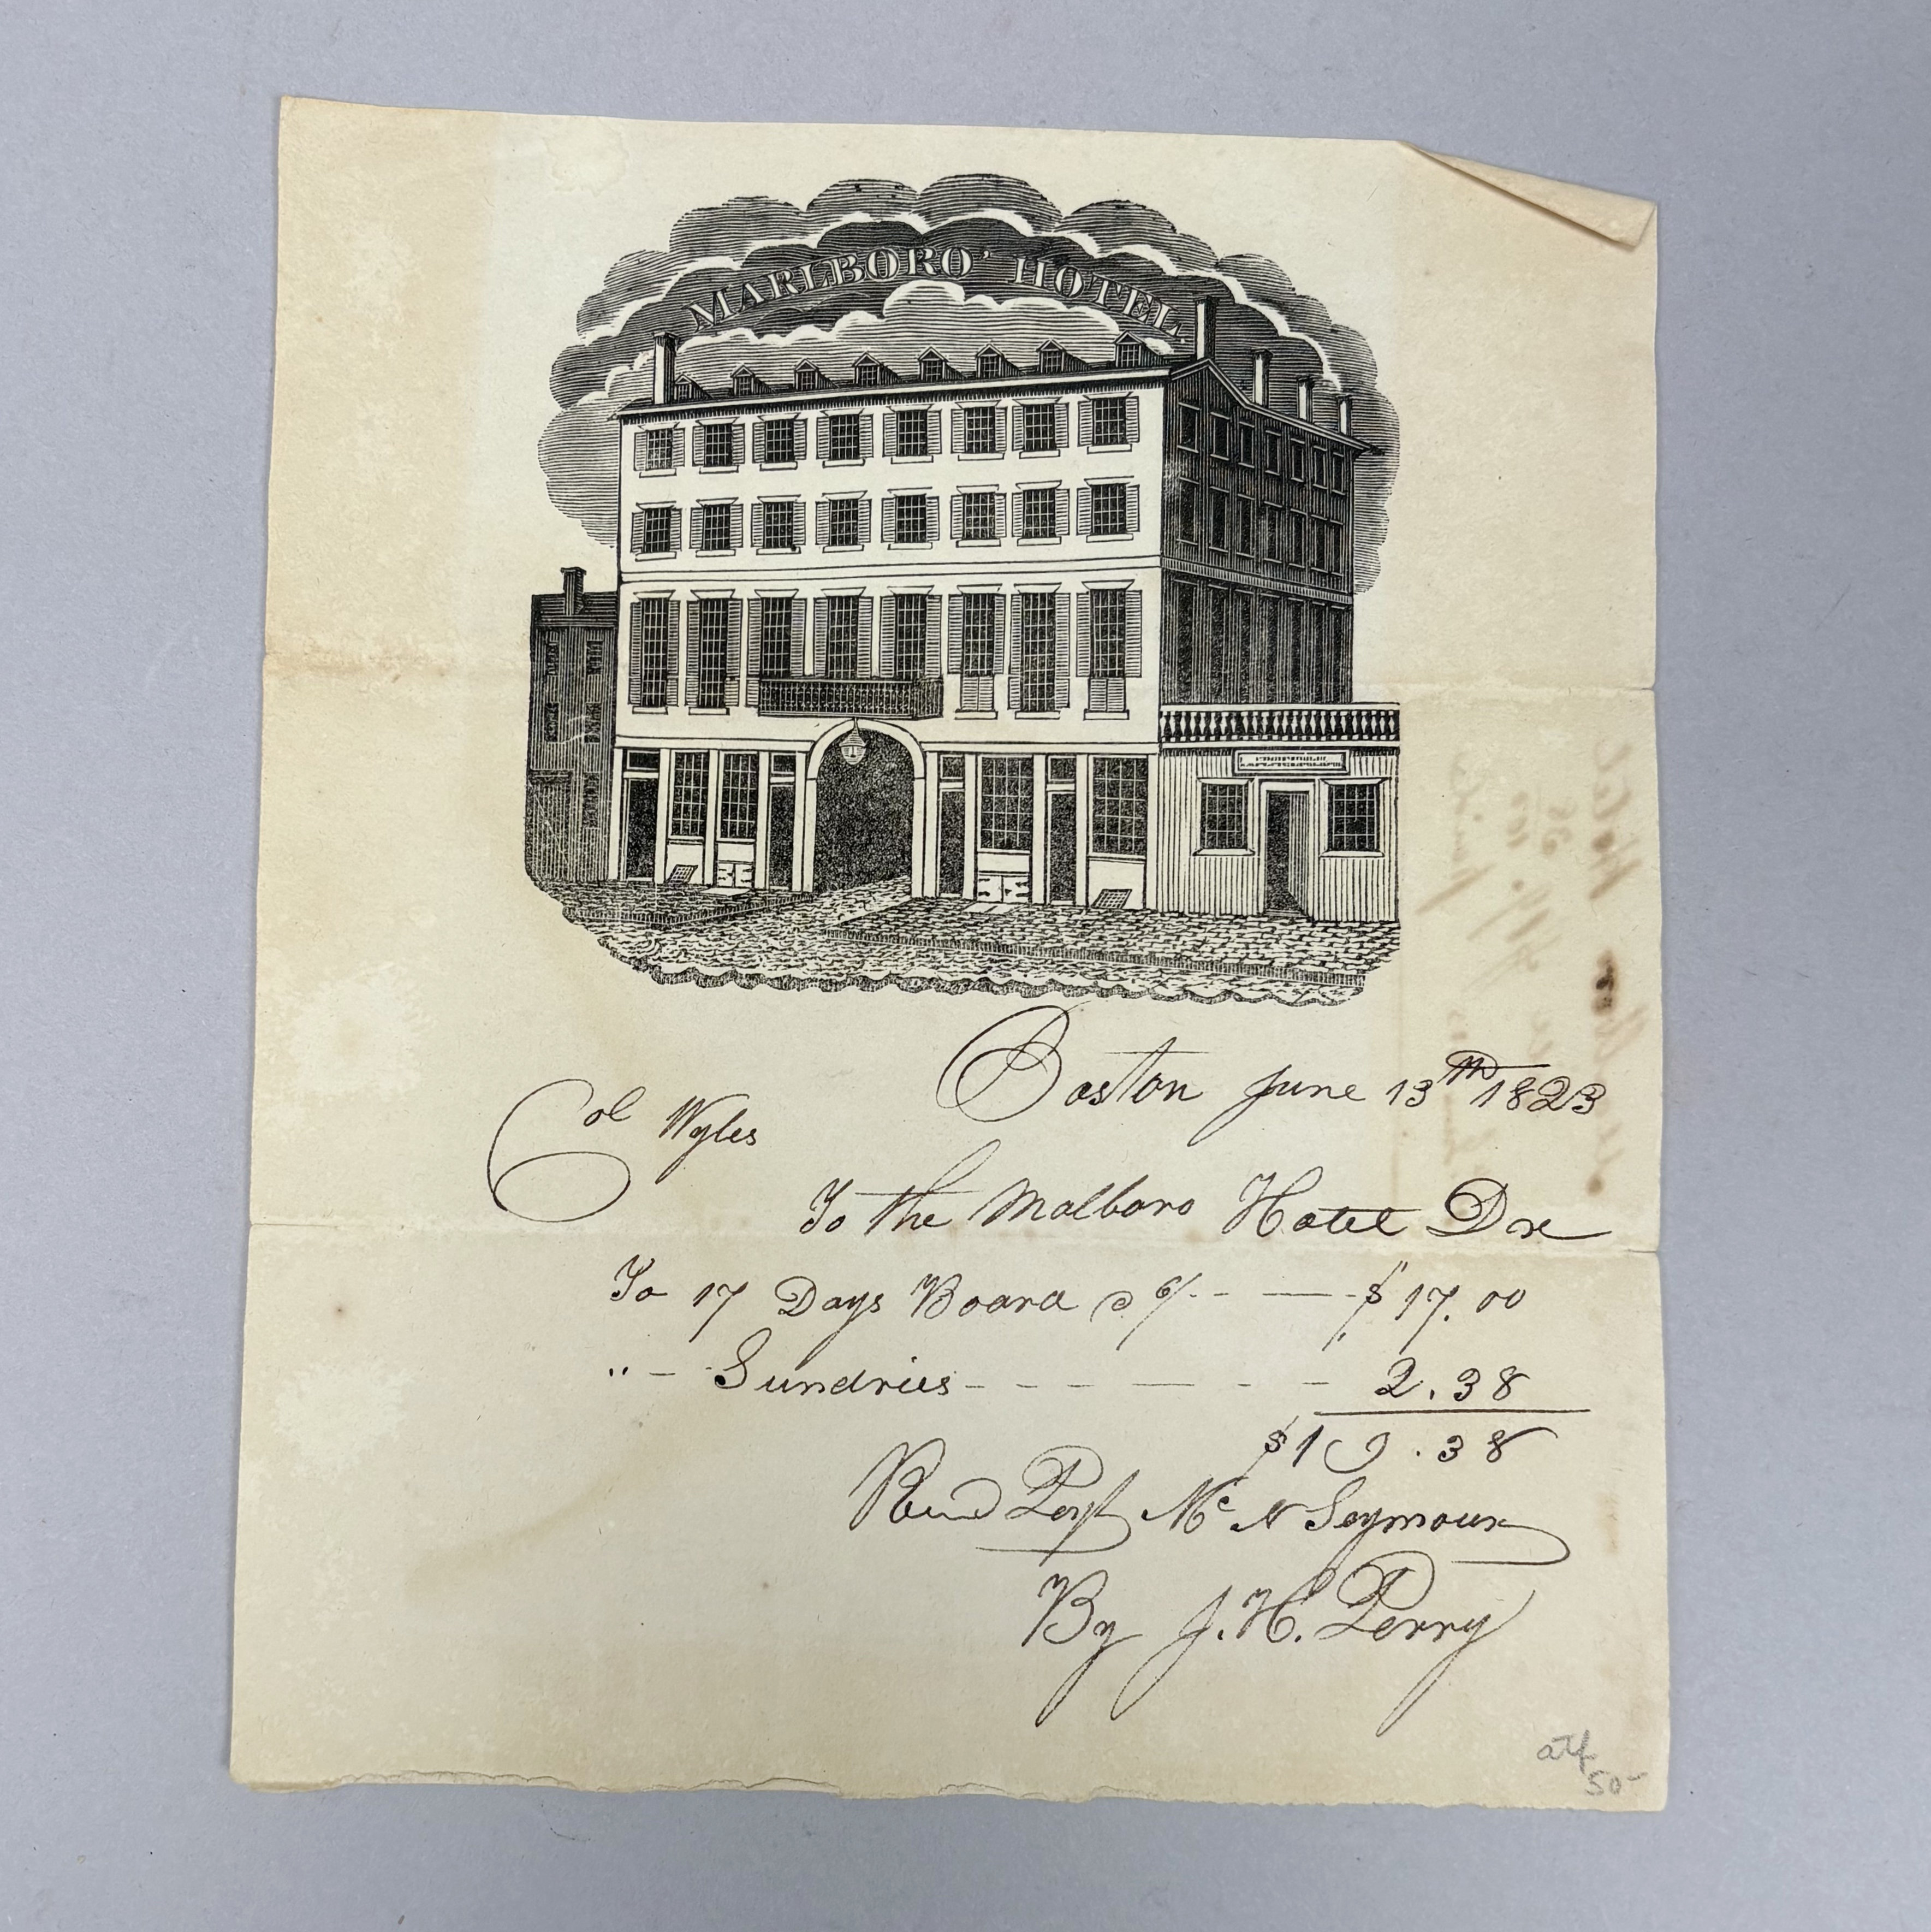 MARLBORO' HOTEL.
Boston June 13th 1823
Col Wyles
To the Malboro Hotel Dr
To 17 Days Board @ 6/- $17.00
" - Sundries - 2.38
$19.38
Recd Payt Mc N Seymour
By J. H. Perry
50-